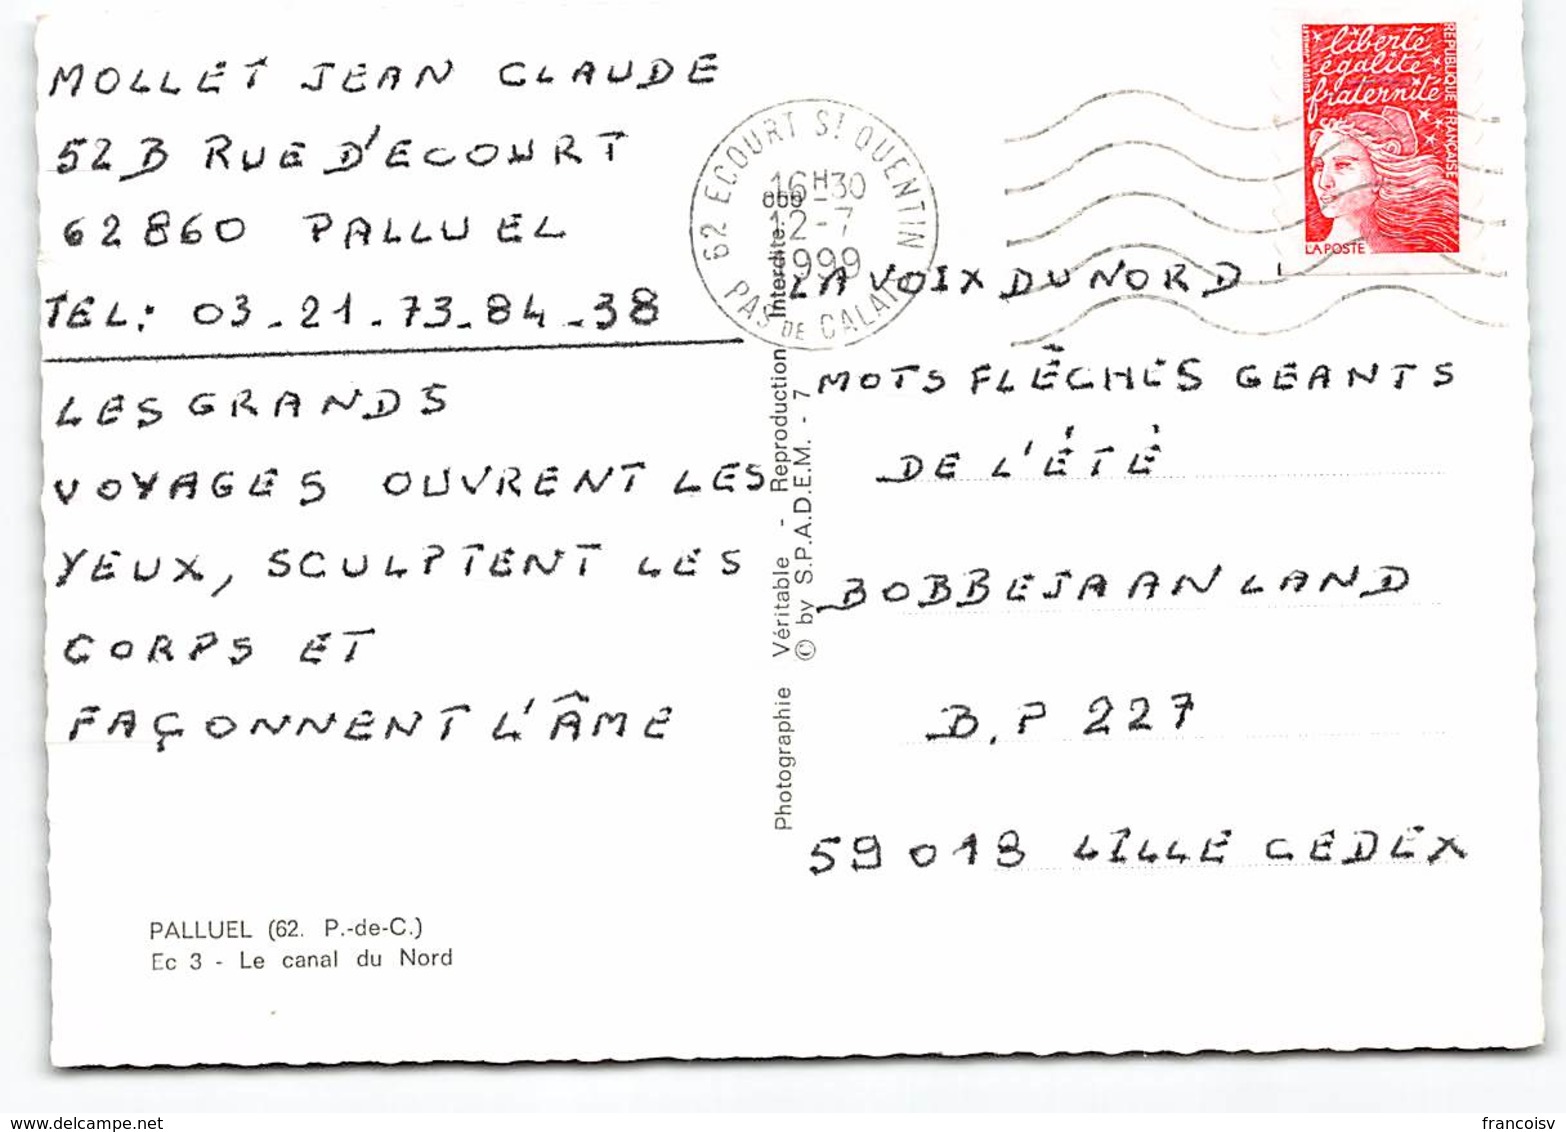 MOLLET JEAN CLAUDE
52B RUE D'ECOURT
62860 PALLUEL
TEL: 03-21-73-84-38
LES GRANDS
VOYAGES OUVRENT LES
YEUX, SCULPTENT LES
CORPS ET
FAÇONNENT L'ÂME
PALLUEL (62. P.-de-C.)
Ec 3 - Le canal du Nord
Photographie Véritable - Reproduction Interdite.
© by S.P.A.D.E.M. - 7
62 ECOURT ST QUENTIN
16H30
12-7
1999
PAS DE CALAIS
liberté
égalité
fraternité
REPUBLIQUE FRANÇAISE
LA POSTE
LA VOIX DU NORD
MOTS FLÉCHÉS GEANTS
DE L'ÉTÉ
BOBBEJAANLAND
B.P 227
59019 LILLE CEDEX
www.delcampe.net
francoisv